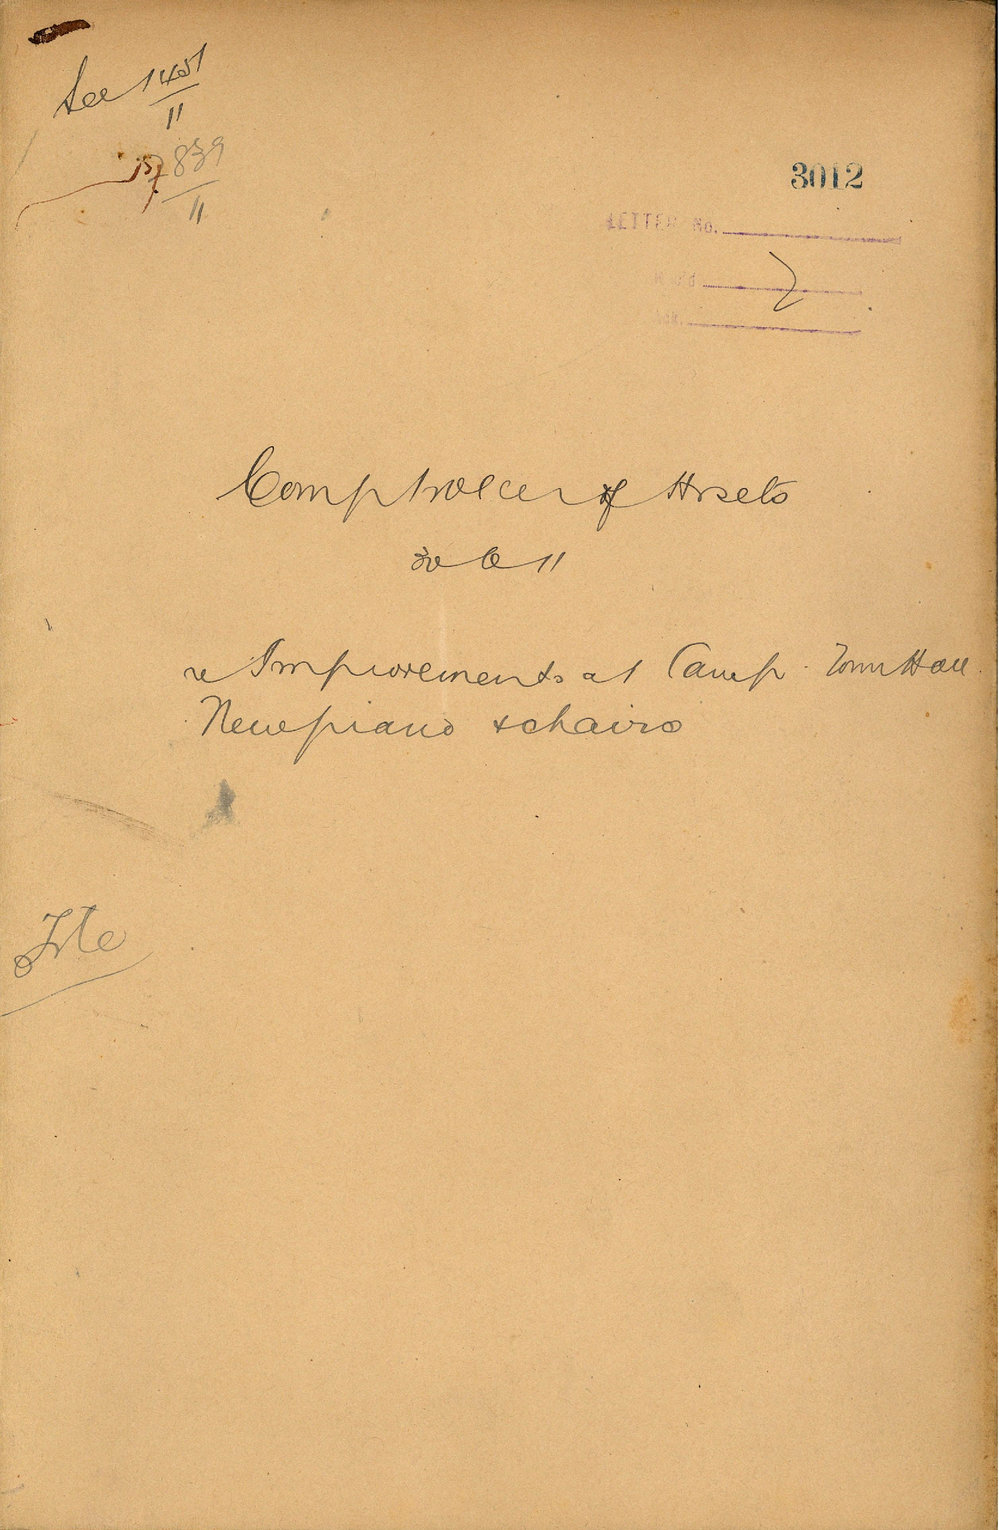 See 1451
11
157 839
11
3012
LETTER No.
Comptroller of Assets
30 6 11
re Improvements at Camp Town Hall
New piano & chairs
File